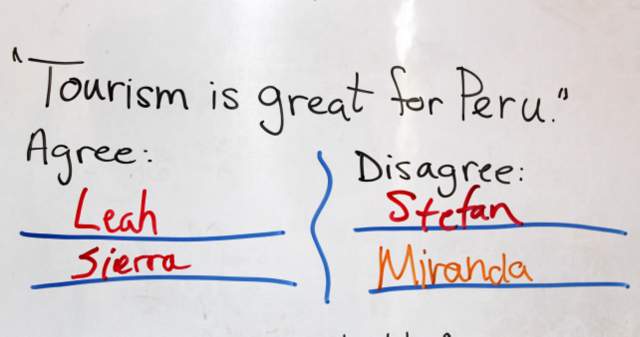 "Tourism is great for Peru."
Agree:
Leah
Sierra
Disagree:
Stefan
Miranda